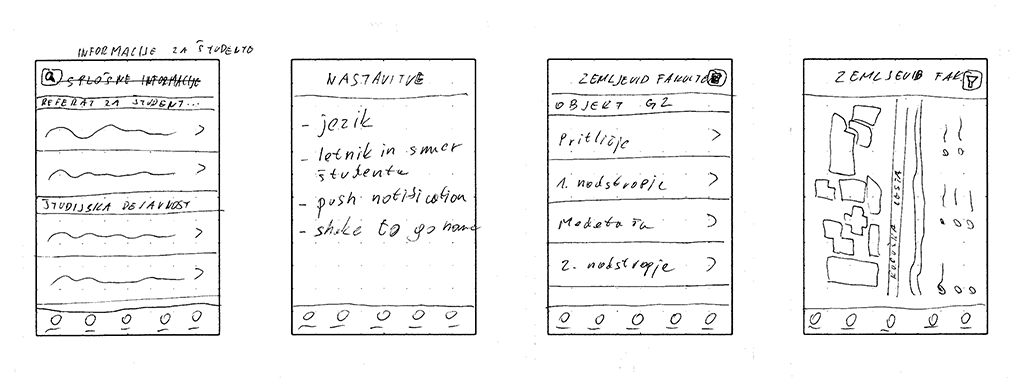 INFORMACIJE ZA ŠTUDENTO
SPLOŠNE INFORMACIJE
REFERAT ZA ŠTUDENT...
ŠTUDIJSKA DEJAVNOST
NASTAVITVE
- jezik
- letnik in smer
študenta
- push notification
- shake to go home
ZEMLJEVID FAKULTE
OBJEKT G2
Pritličje
1. nadstropje
Medetaža
2. nadstropje
ZEMLJEVID FAK
KOROŠKA CESTA